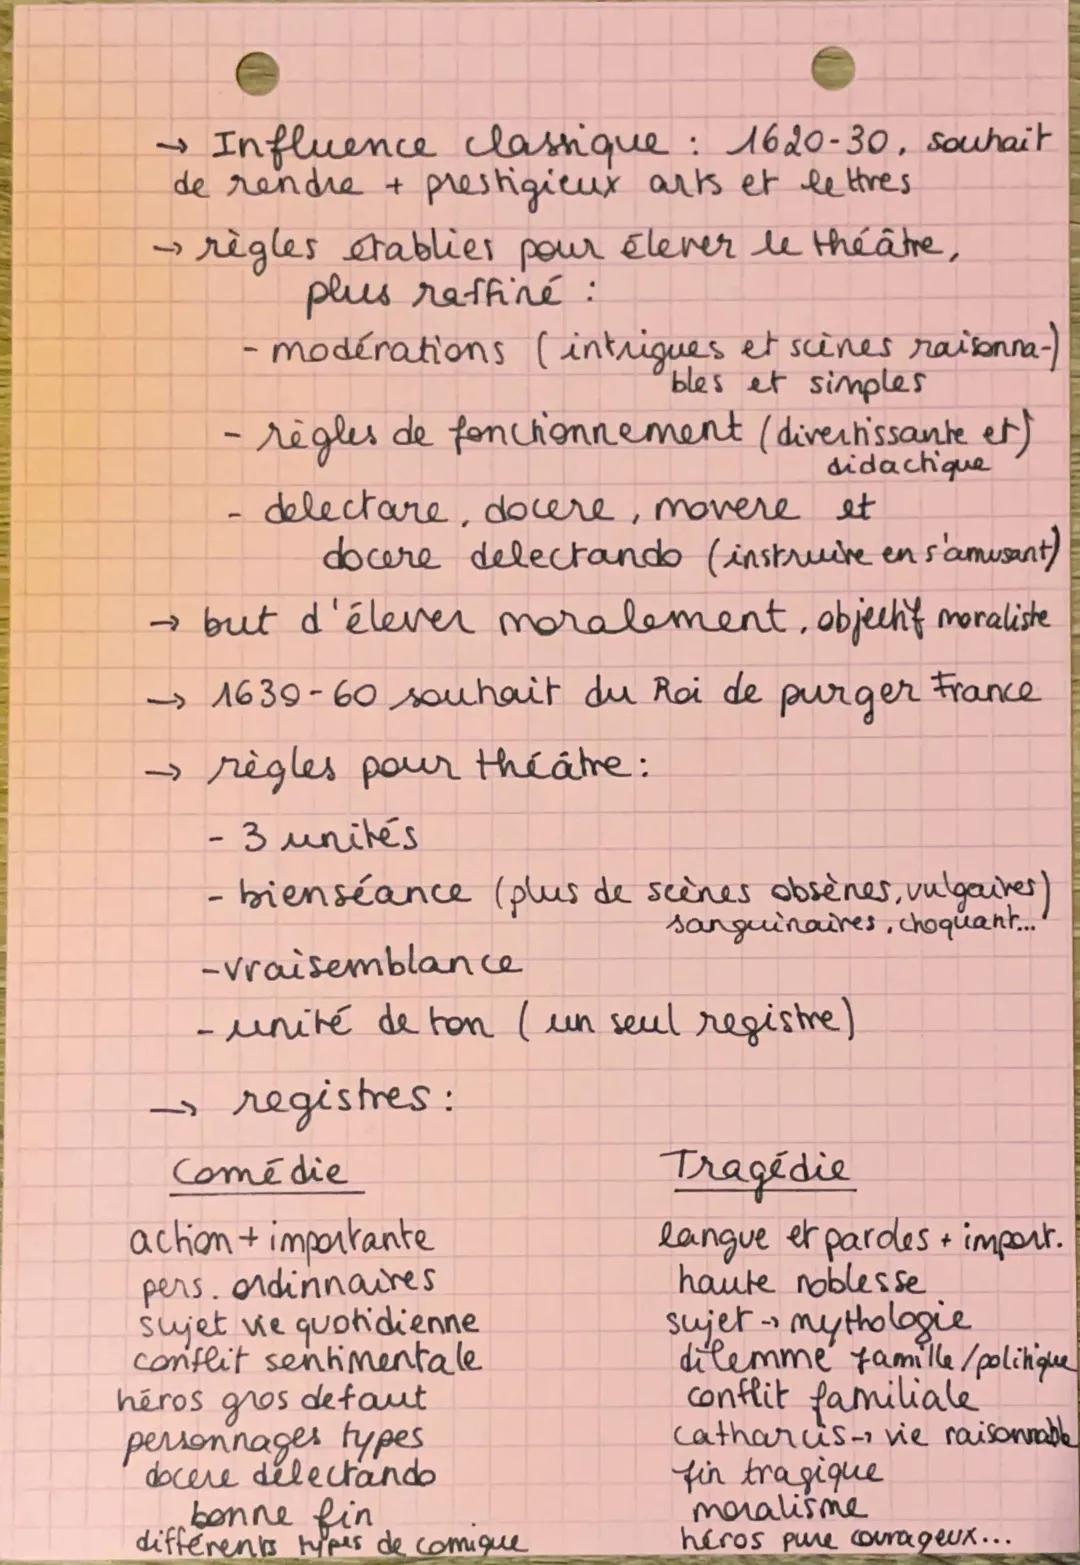 → Influence classique : 1620-30, souhait
de rendre + prestigieux arts et lettres
→ règles établies pour élever le théâtre,
plus raffiné :
- modérations (intrigues et scènes raisonna-)
bles et simples
- règles de fonctionnement (divertissante et)
didactique
- delectare, docere, movere et
docere delectando (instruire en s'amusant)
→ but d'élever moralement, objectif moraliste
→ 1630-60 souhait du Roi de purger France
→ règles pour théâtre :
- 3 unités
- bienséance (plus de scènes obsènes, vulgaires)
sanguinaires, choquant...
- vraisemblance
- unité de ton (un seul registre)
→ registres :
Comédie
action + importante
pers. ordinnaires
sujet vie quotidienne
conflit sentimentale
héros gros defaut
personnages types
docere délectando
bonne fin
différents types de comique
Tragédie
langue et paroles + import.
haute noblesse
sujet → mythologie
dilemme famille/politique
conflit familiale
catharcis → vie raisonnable
fin tragique
moralisme
héros pure courageux...